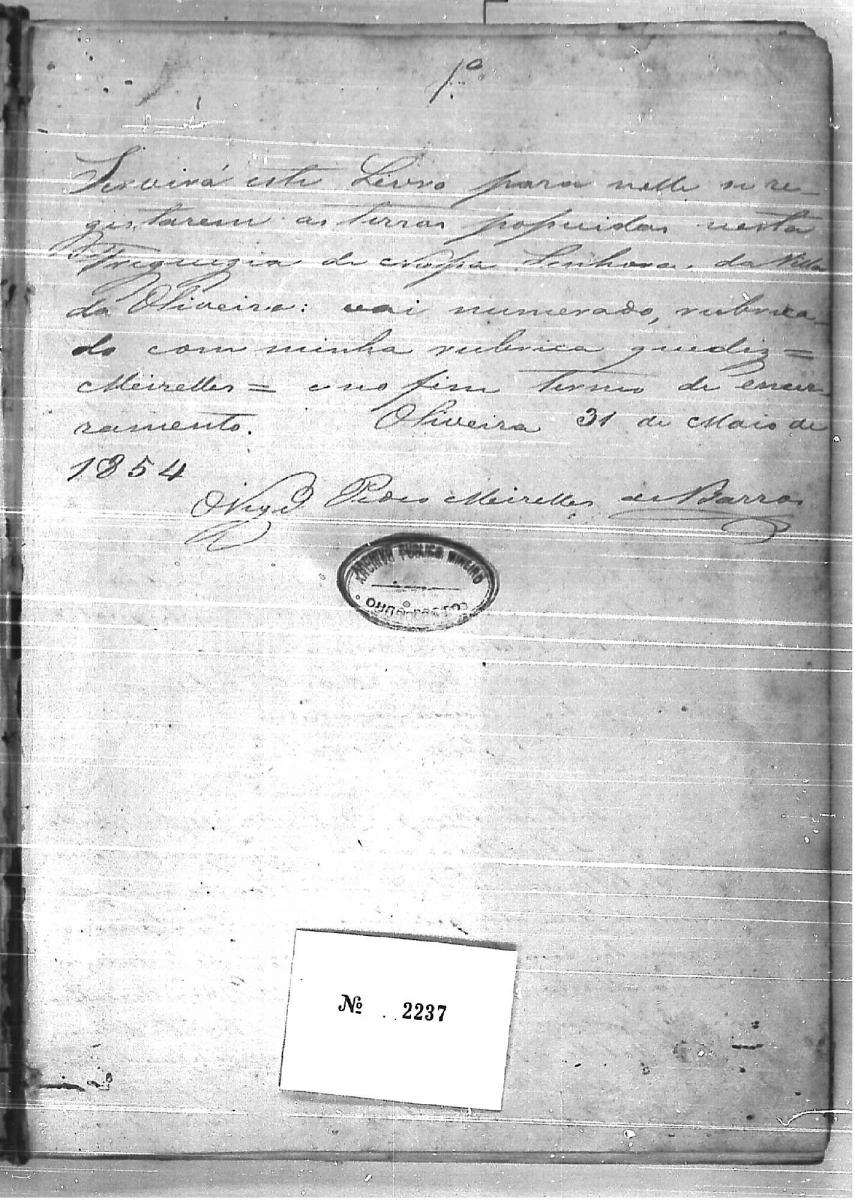 1ª
Servirá este Livro para nelle se re-
gistarem as terras possuidas nesta
Freguezia de Nossa Senhora da Villa
da Oliveira: vai numerado, rubrica-
do com minha rubrica que diz =
Meirelles = e no fim termo de encer-
ramento. Oliveira 31 de Maio de
1854
Pedro Meirelles de Barros
ARCHIVO PUBLICO MINEIRO
OURO PRETO
№ 2237